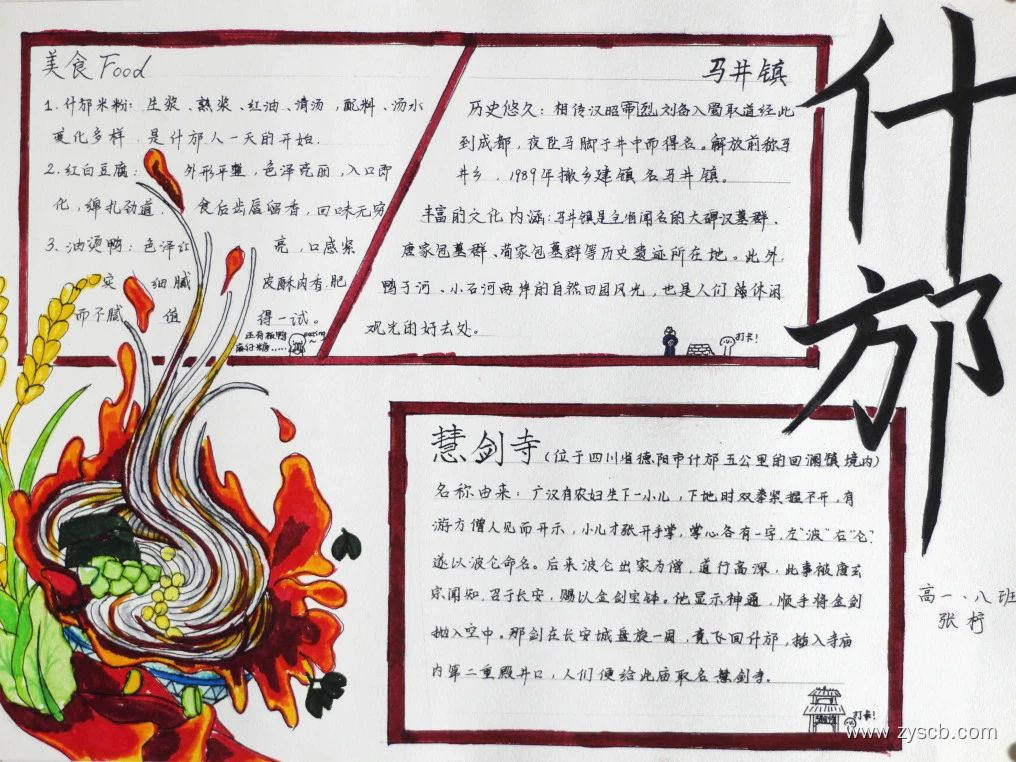 什邡
美食 Food
1. 什邡米粉：生浆、熟浆、红油、清汤，配料、汤水
变化多样，是什邡人一天的开始.
2. 红白豆腐：外形平整，色泽亮丽，入口即
化，绵扎劲道．食后齿唇留香，回味无穷
3. 油烫鸭：色泽红亮，口感紧
实细腻皮酥肉香.肥
而不腻值得一试。
还有板鸭
马井镇
历史悠久：相传汉昭帝烈刘备入蜀取道经此
到成都，夜坠马脚于井中而得名。解放前称马
井乡，1989年撤乡建镇名马井镇。
丰富的文化内涵：马井镇是全省闻名的大碑汉墓群、
唐家包墓群、荀家包墓群等历史遗迹所在地。此外，
鸭子河、小石河两岸的自然田园风光，也是人们休闲
观光的好去处。
打卡！
慧剑寺（位于四川省德阳市什邡五公里的回澜镇境内）
名称由来：广汉有农妇生下一小儿，下地时双拳紧握不开，有
游方僧人见而开示，小儿才张开手掌，掌心各有一字，左“波”右“仑”．
遂以波仑命名。后来波仑出家为僧，道行高深，此事被唐玄
宗闻知，召于长安，赐以金剑宝钵。他显示神通，顺手将金剑
抛入空中。那剑在长安城盘旋一周，竟飞回什邡，插入寺庙
内第二重殿井口，人们便给此庙取名慧剑寺.
打卡！
高一．八班
张柠
www.zyscb.com